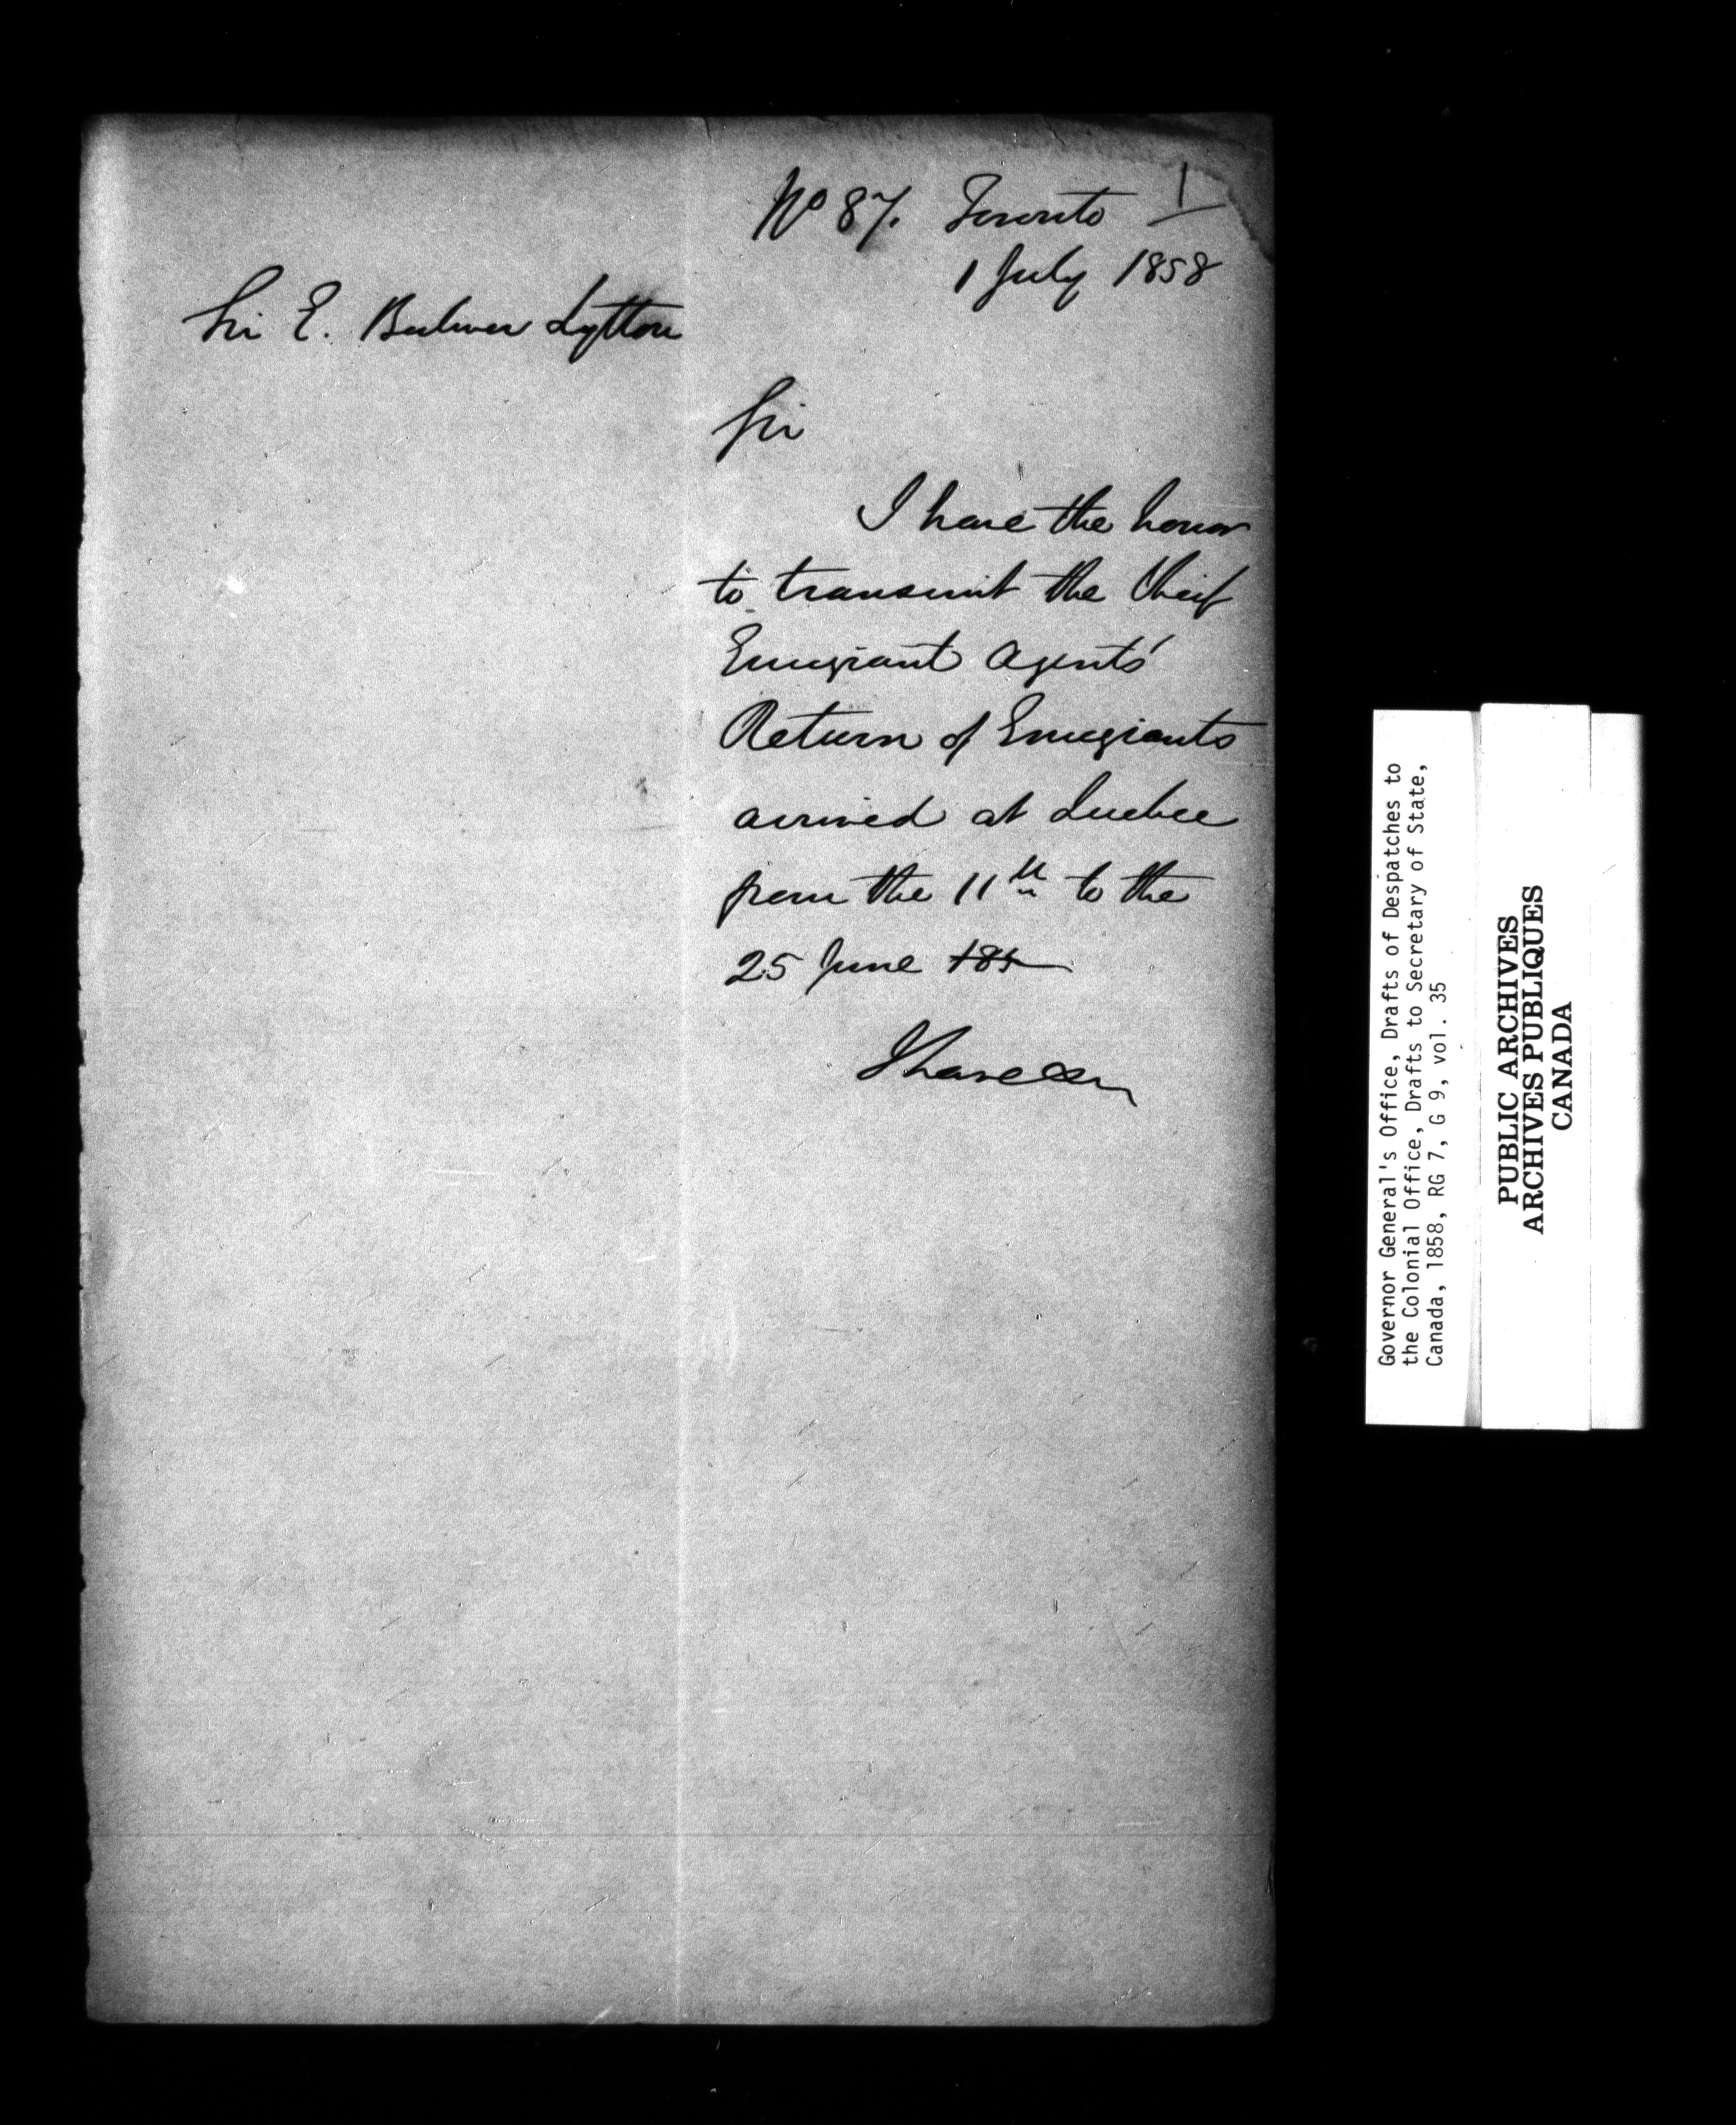 1
No 87. Toronto
1 July 1858
Sir E. Bulwer Lytton
Sir
I have the honor
to transmit the Chief
Emigrant Agents'
Return of Emigrants
arrived at Quebec
from the 11th to the
25 June 185
I have &c
Governor General's Office, Drafts of Despatches to
the Colonial Office, Drafts to Secretary of State,
Canada, 1858, RG 7, G 9, vol. 35
PUBLIC ARCHIVES
ARCHIVES PUBLIQUES
CANADA